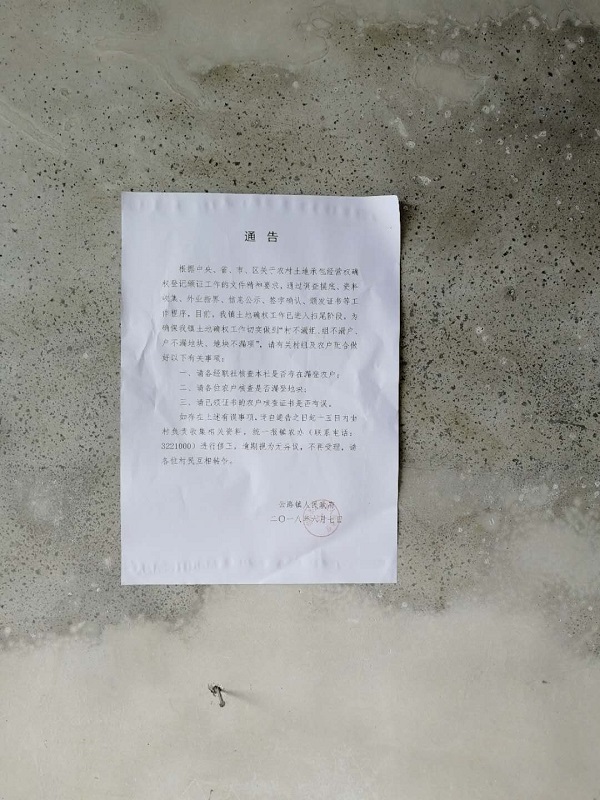 通告
根据中央、省、市、区关于农村土地承包经营权确
权登记颁证工作的文件精神要求，通过调查摸底、资料
收集、外业指界、信息公示、签字确认、颁发证书等工
作程序，目前，我镇土地确权工作已进入扫尾阶段，为
确保我镇土地确权工作切实做到“村不漏组、组不漏户、
户不漏地块、地块不漏项”，请有关村组及农户配合做
好以下有关事项：
一、请各经联社核查本社是否存在漏登农户；
二、请各位农户核查是否漏登地块；
三、请已领证书的农户核查证书是否有误。
如存在上述有误事项，于自通告之日起一五日内
村负责收集相关资料，统一报镇农办（联系电话：
3221000）进行修正，逾期视为无异议，不再受理，请
各位村民互相转告。
镇人民政府
二〇一八年六月七日